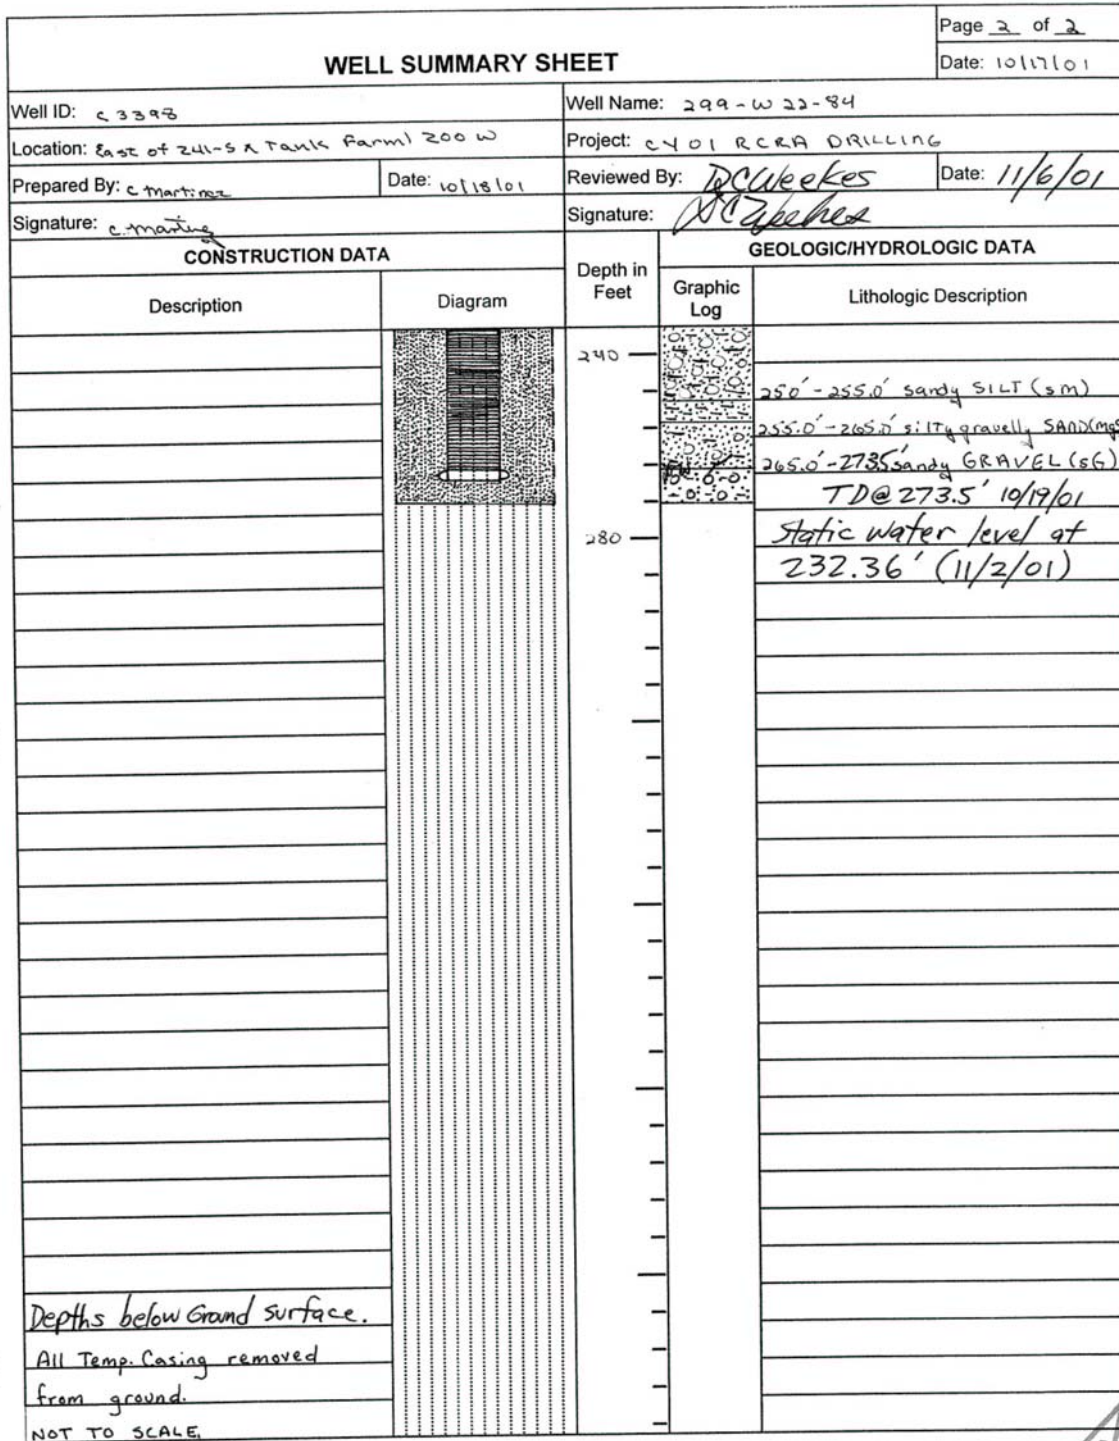 Page 2 of 2
WELL SUMMARY SHEET
Date: 10/17/01
Well ID: C3398
Well Name: 299-W22-84
Location: East of 241-SX Tank Farm/ 200 W
Project: CY01 RCRA DRILLING
Prepared By: C Martinez Date: 10/18/01
Reviewed By: DC Weekes Date: 11/6/01
Signature: C. Martinez
Signature: DC Weekes
CONSTRUCTION DATA
Depth in Feet
GEOLOGIC/HYDROLOGIC DATA
Description
Diagram
Graphic Log
Lithologic Description
240
250' - 255.0' sandy SILT (sm)
255.0' - 265.0' silty gravelly SAND (mgS
265.0' - 273.5' sandy GRAVEL (sG)
TD@ 273.5' 10/19/01
280
Static water level at
232.36' (11/2/01)
Depths below Ground Surface.
All Temp. Casing removed
from ground.
NOT TO SCALE.